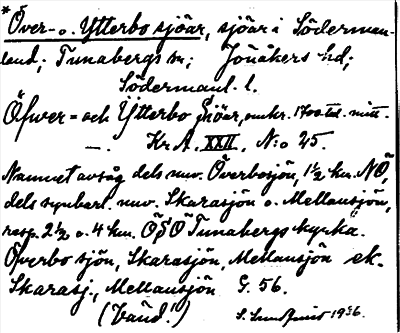 * Över- o. Ytterbo sjöar, sjöar i Söderman-
land; Tunabergs sn; Jönåkers hd;
Södermanl. l.
Öfwer= och Ytterbo Siöar, omkr. 1700tal. mitt.
—. Kr. A. XXII, N:o 25.
Namnet avsåg dels nuv. Överbosjön, 1½ km. NÖ,
dels synbarl. nuv. Skarasjön o. Mellansjön,
resp. 2½ o. 4 km. ÖSÖ Tunabergs kyrka.
Överbo sjön, Skarasjön, Mellansjön ek.
Skarasj., Mellansjön G. 56.
(Vänd.) S. 1936.